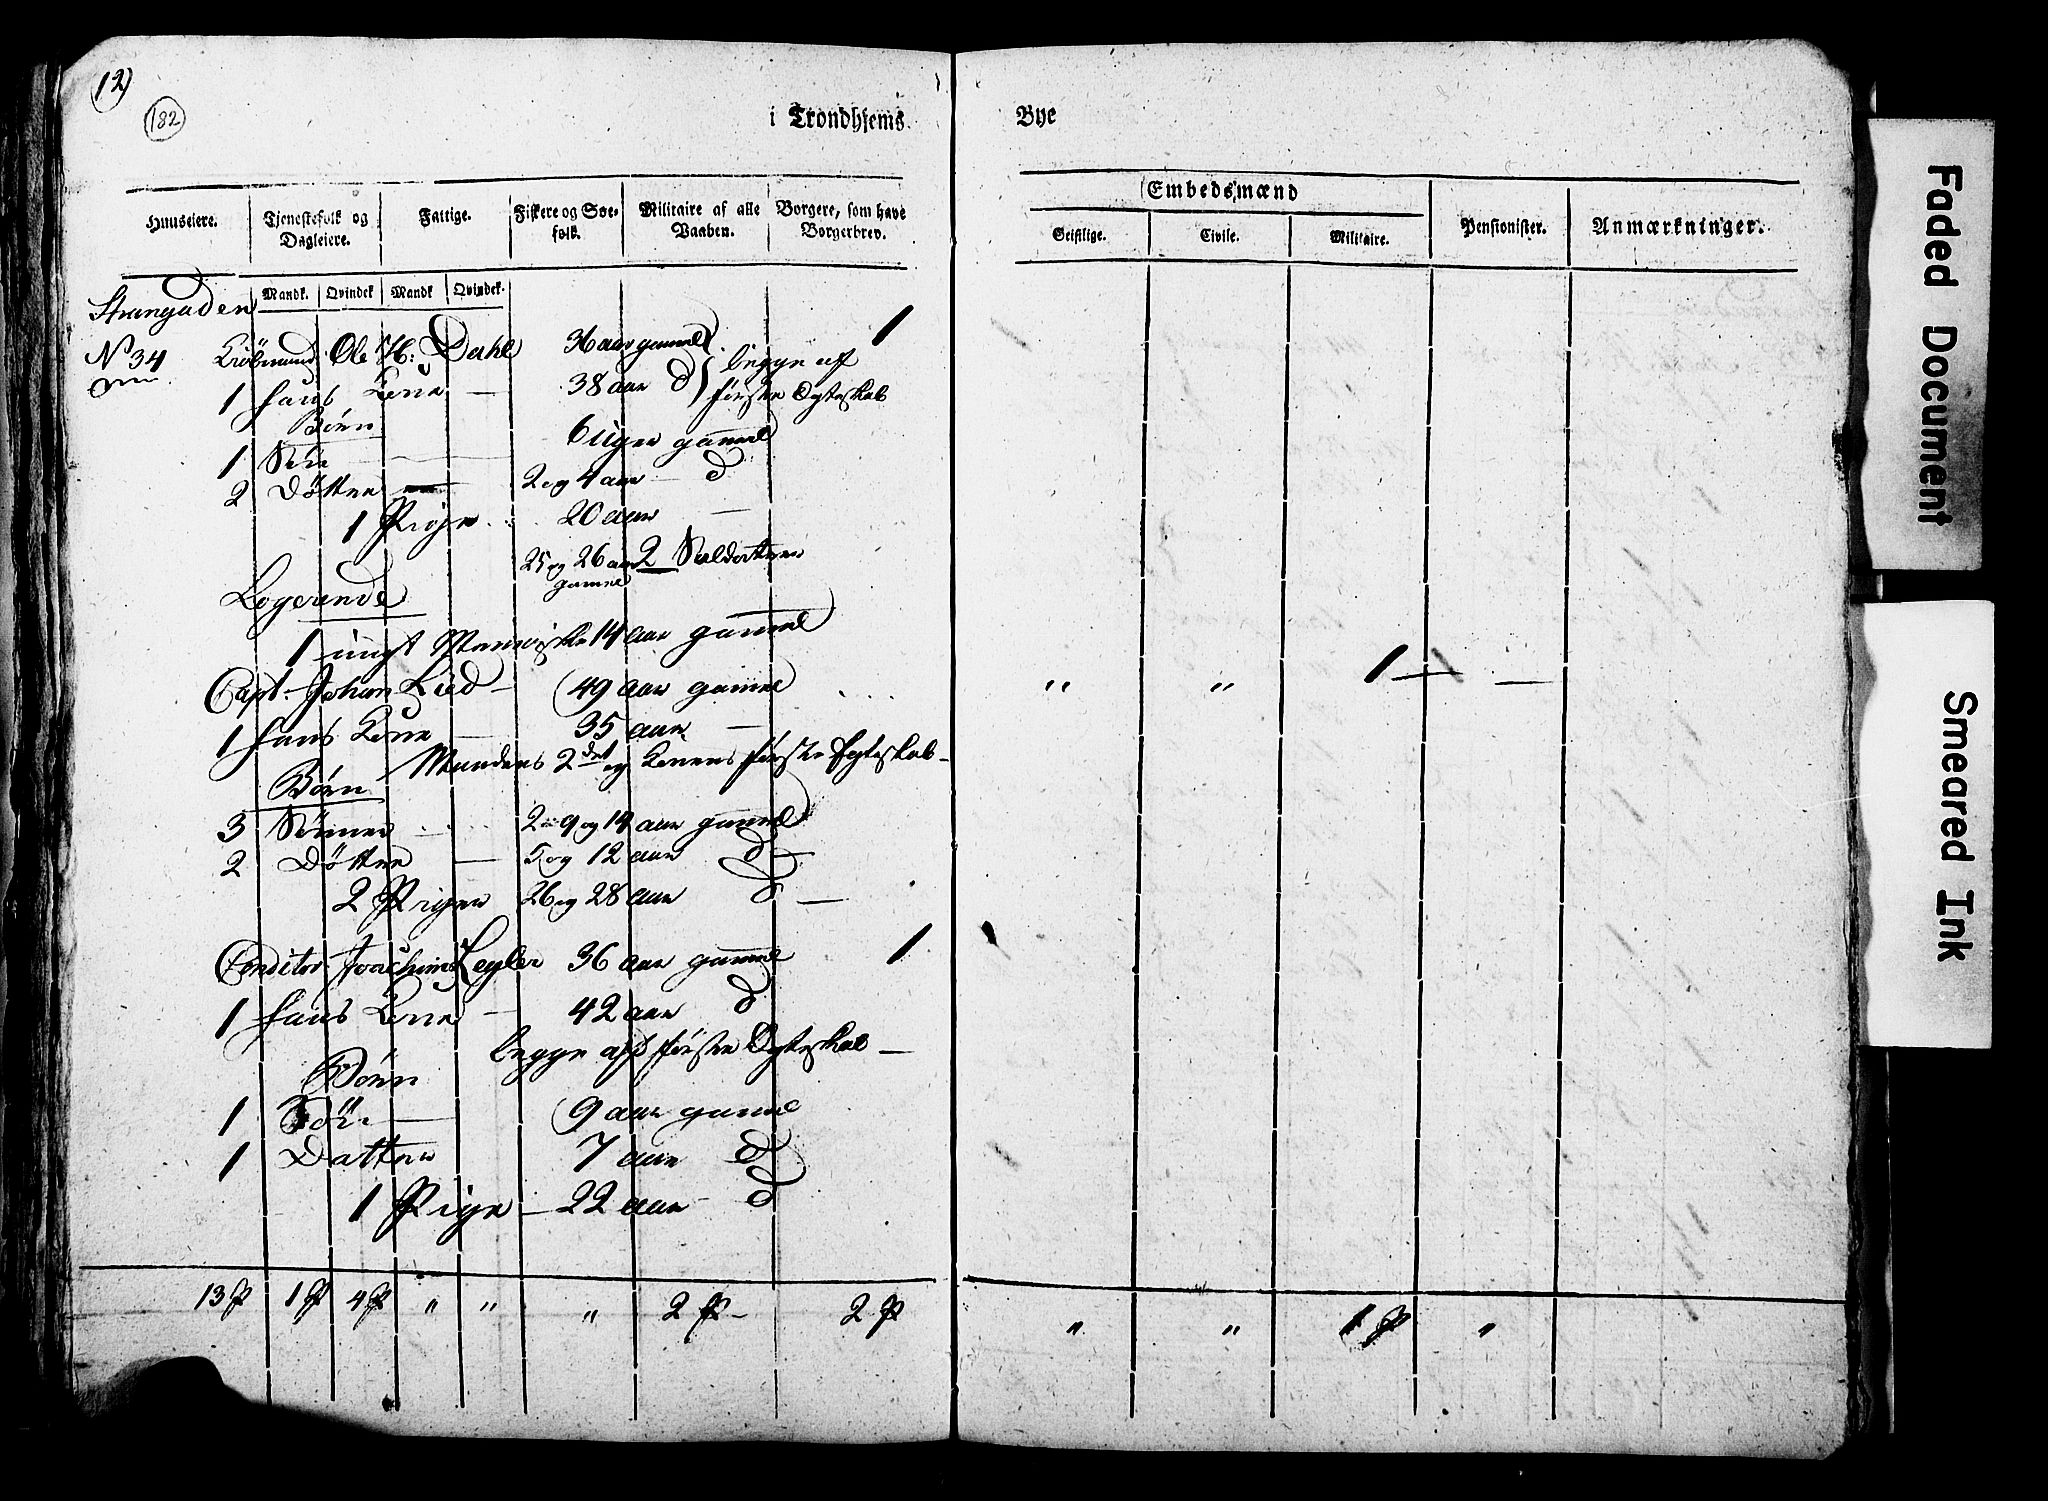 12)
182
i Trondhjems Bye
Huuseiere. Tjenestefolk og Dagleiere. Fattige. Fiskere og Søe-folk. Militaire af alle Vaaben. Borgere, som have Borgerbrev. Embedsmænd Pensionister. Anmærkninger.
Geistlige. Civile. Militaire.
Mandk. Qvindek Mandk Qvindek.
Strangaden
No 34 Kiøbmand Ole H: Dahl 36 aar gammel 1
1 hans Kone — 38 aar d begge af første Ægteskab
Børn
1 Søn — 6 uger gammel
2 Døttre — 2 og 4 aar — d
1 Pige 20 aar —
25 og 26 aar gamel 2 Soldatter
Logerende
1 ungt Menniske 14 aar gammel
Capt. Johan Lied — 49 aar gamel " " 1 — —
1 hans Kone 35 aar —
Mandens 2det og Konens første Egteskab —
Børn
3 Sønner 2 9 og 14 aar gammel
2 Døttre — 5 og 12 aar d —
2 Piger 26 og 28 aar d —
Conditor Joachim Legler 36 aar gammel 1
1 hans Kone — 42 aar d
begge aff første Ægteskab —
Børn
1 Søn — 9 aar gammel
1 Datter 7 aar d
1 Pige — 22 aar — d
13 P 1 P 4 P " " " 2 P — 2 P " " 1 P "
Faded Document
Smeared Ink